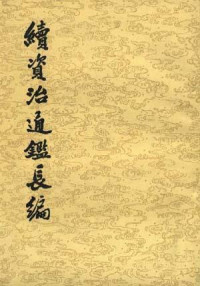 續資治通鑑長編